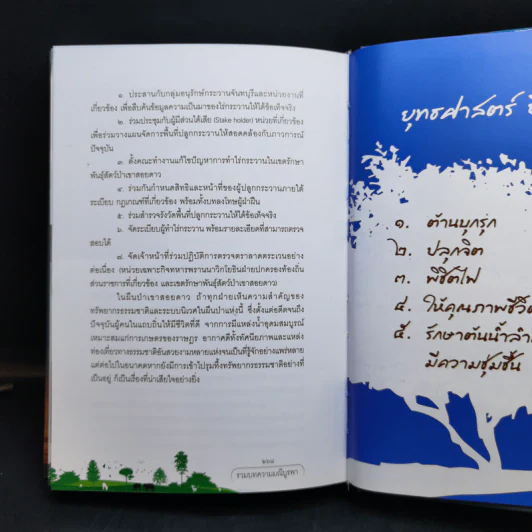 ๑. ประสานกับกลุ่มอนุรักษ์กระวานจันทบุรีและหน่วยงานที่
เกี่ยวข้อง เพื่อสืบค้นข้อมูลความเป็นมาของไร่กระวานให้ได้ข้อเท็จจริง
๒. ร่วมประชุมกับผู้มีส่วนได้เสีย (Stake holder) หน่วยที่เกี่ยวข้อง
เพื่อร่วมวางแผนจัดการพื้นที่ปลูกกระวานให้สอดคล้องกับภาวการณ์
ปัจจุบัน
๓. ตั้งคณะทำงานแก้ไขปัญหาการทำไร่กระวานในเขตรักษา
พันธุ์สัตว์ป่าเขาสอยดาว
๔. ร่วมกันกำหนดสิทธิและหน้าที่ของผู้ปลูกกระวานภายใต้
ระเบียบ กฎเกณฑ์ที่เกี่ยวข้อง พร้อมทั้งบทลงโทษผู้ฝ่าฝืน
๕. ร่วมสำรวจรังวัดพื้นที่ปลูกกระวานให้ได้ข้อเท็จจริง
๖. จัดระเบียบผู้ทำไร่กระวาน พร้อมรายละเอียดที่สามารถตรวจ
สอบได้
๗. จัดเจ้าหน้าที่ร่วมปฏิบัติการตรวจตราลาดตระเวนอย่าง
ต่อเนื่อง (หน่วยเฉพาะกิจทหารพรานนาวิกโยธินฝ่ายปกครองท้องถิ่น
ส่วนราชการที่เกี่ยวข้อง และเขตรักษาพันธุ์สัตว์ป่าเขาสอยดาว)
ในผืนป่าเขาสอยดาว ถ้าทุกฝ่ายเห็นความสำคัญของ
ทรัพยากรธรรมชาติและระบบนิเวศในผืนป่าแห่งนี้ ซึ่งตั้งแต่อดีตจนถึง
ปัจจุบันผู้คนในแถบถิ่นให้มีชีวิตที่ดี จากการมีแหล่งน้ำอุดมสมบูรณ์
เหมาะสมแก่การเกษตรของราษฎร อากาศดีทั้งทัศนียภาพและแหล่ง
ท่องเที่ยวทางธรรมชาติอันสวยงามหลายแห่งจนเป็นที่รู้จักอย่างแพร่หลาย
แต่ต่อไปในอนาคตหากยังมีการเข้าไปรุมทึ้งทรัพยากรธรรมชาติอย่างที่
เป็นอยู่ ก็เป็นเรื่องที่น่าเสียใจอย่างยิ่ง
๒๖๘
รวมบทความมณีบูรพา
ยุทธศาสตร์
๑. ต้านบุกรุก
๒. ปลุกจิต
๓. พิชิตไฟ
๔. ให้คุณภาพชีวิต
๕. รักษาต้นน้ำลำ
มีความชุ่มชื้น